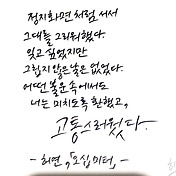 정지화면처럼 서서
그대를 그리워했다.
잊고 싶었지만
그립지 않은 날은 없었다.
어떤 불운 속에서도
너는 미치도록 환했고,
고통스러웠다.
- 허연, 『오십 미터』 -